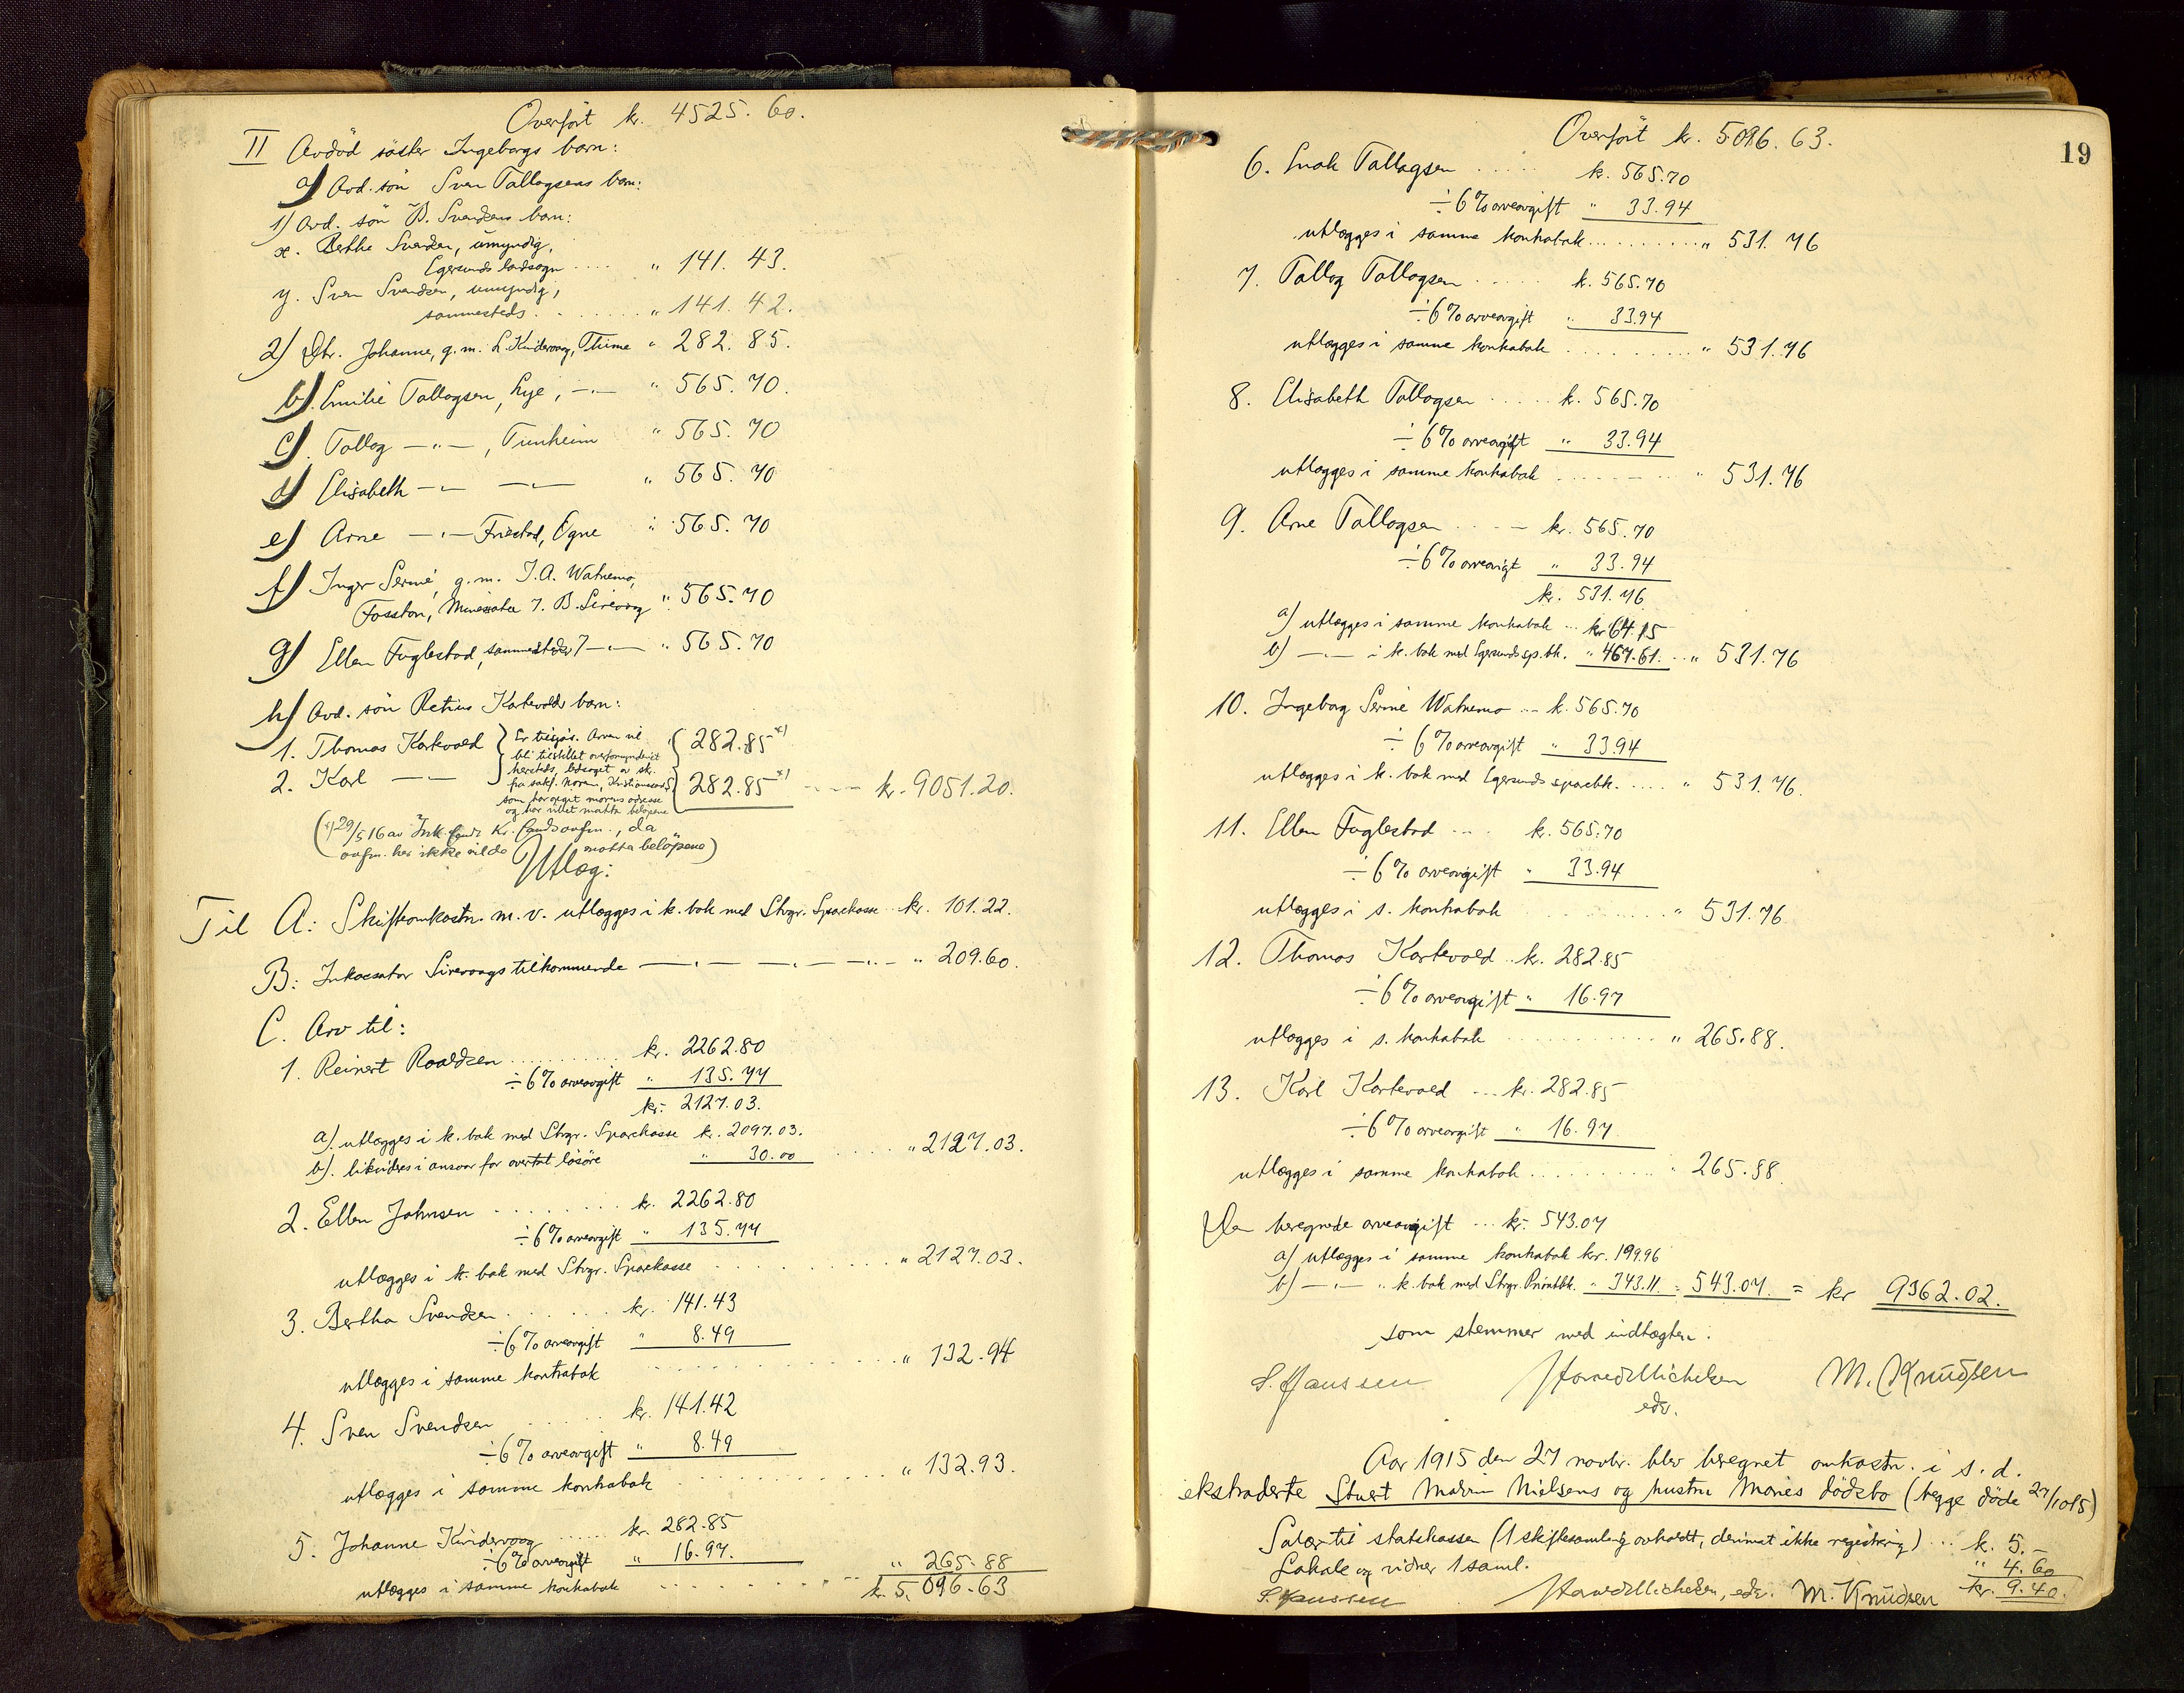 Overført kr. 4525.60.
II Avdöd söster Ingeborgs barn:
a) Avd. sön Sven Tallagsens barn:
1) Avd. sön B. Svendsens barn:
x. Berthe Svendsen, umyndig,
Egersunds ladsogn .... " 141.43.
y. Sven Svendsen, umyndig,
sammesteds. . ..... " 141.42.
2) Dtr. Johanne, g.m. L. Kvidevoog, Thime " 282.85.
b) Emilie Tallagsen, Lye, —"— " 565.70.
c) Tallag —"—, Tunheim " 565.70
d) Elisabeth —"— —"— " 565.70
e) Arne —"— Friestad, Ogne " 565.70
f) Inger Serine, g.m. T.A. Watnemo,
Fosston, Minesota J. B. Sirevaag " 565.70
g) Ellen Fuglestad, sammesteds? —"— " 565.70
h) Avd. sön Retius Kartevolds barn:
1. Thomas Kartevold } Er tilsjøs. Arven vil { 282.85 *)
bli tilstillet overformynderiet
2. Karl —"— } hersteds, ledsaget av sk. { 282.85 *) ---- kr. 9051.20.
fra sakf. Koren, Kristianssand
som har opgit morens adresse
og har villet motta beløpene
(*) 29/5 16 av Ink. sendt Kr.sands ovfm., da
ovfm. her ikke vilde motta belöpene)
Utlæg:
Til A: Skifteomkostn. m.v. utlægges i k. bok med Stvgr. Sparekasse kr. 101.22.
B: Inkassator Sirevaags tilkommende —"— —"— —"— " 209.60.
C. Arv til:
1. Reinert Roaldsen .......... kr. 2262.80
÷ 6% arveavgift " 135.77
kr. 2127.03.
a). utlægges i k. bok med Stvgr. Sparekasse kr. 2097.03.
b). likvideres i ansvar for overtat lösöre " 30.00 ..... " 2127.03.
2. Ellen Johnsen ........ kr. 2262.80
÷ 6% arveavgift " 135.77
utlægges i k. bok med Stvgr. Sparekasse .......... " 2127.03.
3. Bertha Svendsen ...... kr. 141.43
÷ 6% arveavgift " 8.49
utlægges i samme kontrabok .............. " 132.94
4. Sven Svendsen ..... kr. 141.42
÷ 6% arveavgift " 8.49
utlægges i samme kontrabok ............ " 132.93.
5. Johanne Kvidevoog ..... kr. 282.85
÷ 6% arveavgift " 16.97.
utlægges i samme kontrabok ........... " 265.88
k. 5.096.63
19
Overført kr. 5096.63.
6. Enok Tallagsen ..... kr. 565.70
÷ 6% arveavgift " 33.94
utlægges i samme kontrabok.......... " 531.76
7. Tallag Tallagsen ..... k. 565.70
÷ 6% arveavgift " 33.94
utlægges i samme kontrabok ......... " 531.76
8. Elisabeth Tallagsen ..... k. 565.70
÷ 6% arveavgift " 33.94
utlægges i samme kontrabok ......... " 531.76
9. Arne Tallagsen ---- kr. 565.70
÷ 6% arveavigt " 33.94
kr. 531.76
a) utlægges i samme kontrabok ... kr 64.15
b) —"— i k. bok med Egersunds sp.bk. " 467.61. ... " 531.76
10. Ingeborg Serine Watnemo ... k. 565.70
÷ 6% arveavgift " 33.94
utlægges i k. bok med Egersunds sparebk. .... " 531.76.
11. Ellen Fuglestad ... k. 565.70
÷ 6% arveavgift " 33.94
utlægges i s. kontrabok ........... " 531.76
12. Thomas Kartevold .. k. 282.85
÷ 6% arveavgift " 16.97
utlægges i s. kontrabok ........... " 265.88.
13. Karl Kartevold ... k. 282.85
÷ 6% arveavgift " 16.97
utlægges i samme kontrabok.......... " 265.88
Den beregnede arveavgift ... kr. 543.07
a) utlægges i samme kontrabok kr. 199.96
b) —"— " k. bok med Stvgr. Privatbk. " 343.11. = 543.07. = kr 9362.02.
som stemmer med indtægten.
S. Hanssen M. Knudsen
edv.
Aar 1915 den 27 novbr. blev beregnet omkostn. i s. d.
ekstraderte Stuert Martin Nielsens og hustru Maries dödsbo (begge döde 27/10 15)
Salær til statskassen (1 skiftesamling avholdt, derimot ikke registrering) ... k. 5.–
Lokale og vidner 1 saml. " 4.60
kr. 9.40.
S. Hanssen edv. M. Knudsen